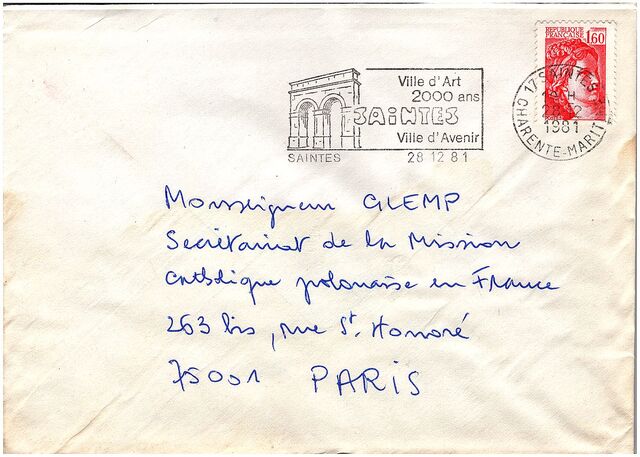 REPUBLIQUE
FRANÇAISE
1,60
17 SAINTES
1981
CHARENTE-MARITIME
Ville d'Art
2000 ans
SAINTES
Ville d'Avenir
SAINTES
28 12 81
Monseigneur GLEMP
Secrétariat de la Mission
catholique polonaise en France
263 bis, rue St. Honoré
75001 PARIS